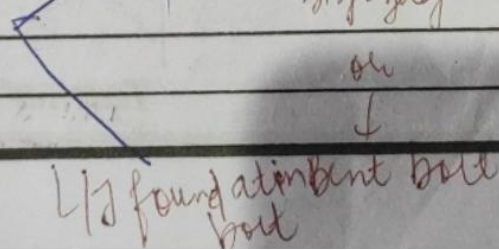 or
L/J foundation Bent bolt
bolt